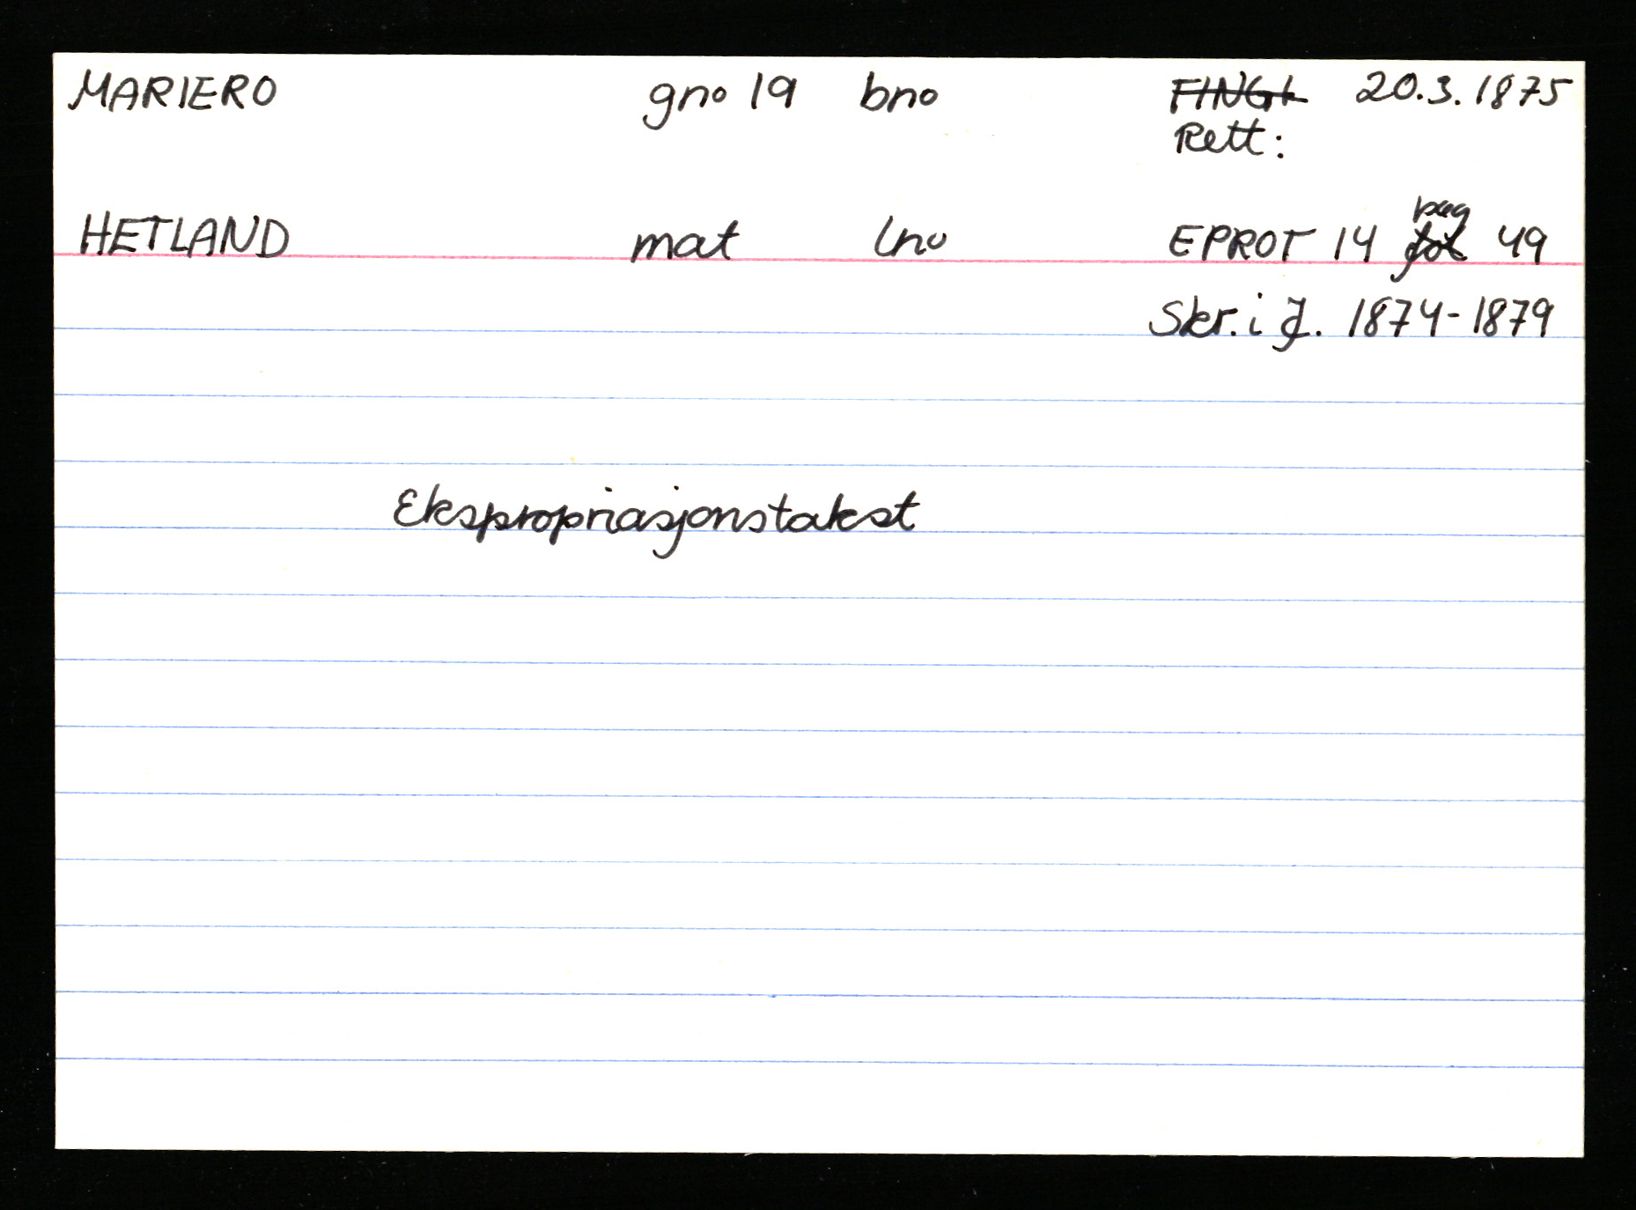 MARIERO gno 19 bno TINGL 20.3.1875
Rett:
pag
HETLAND mat lno EPROT 14 fol 49
Skr. i J. 1874-1879
Ekspropriasjonstakst